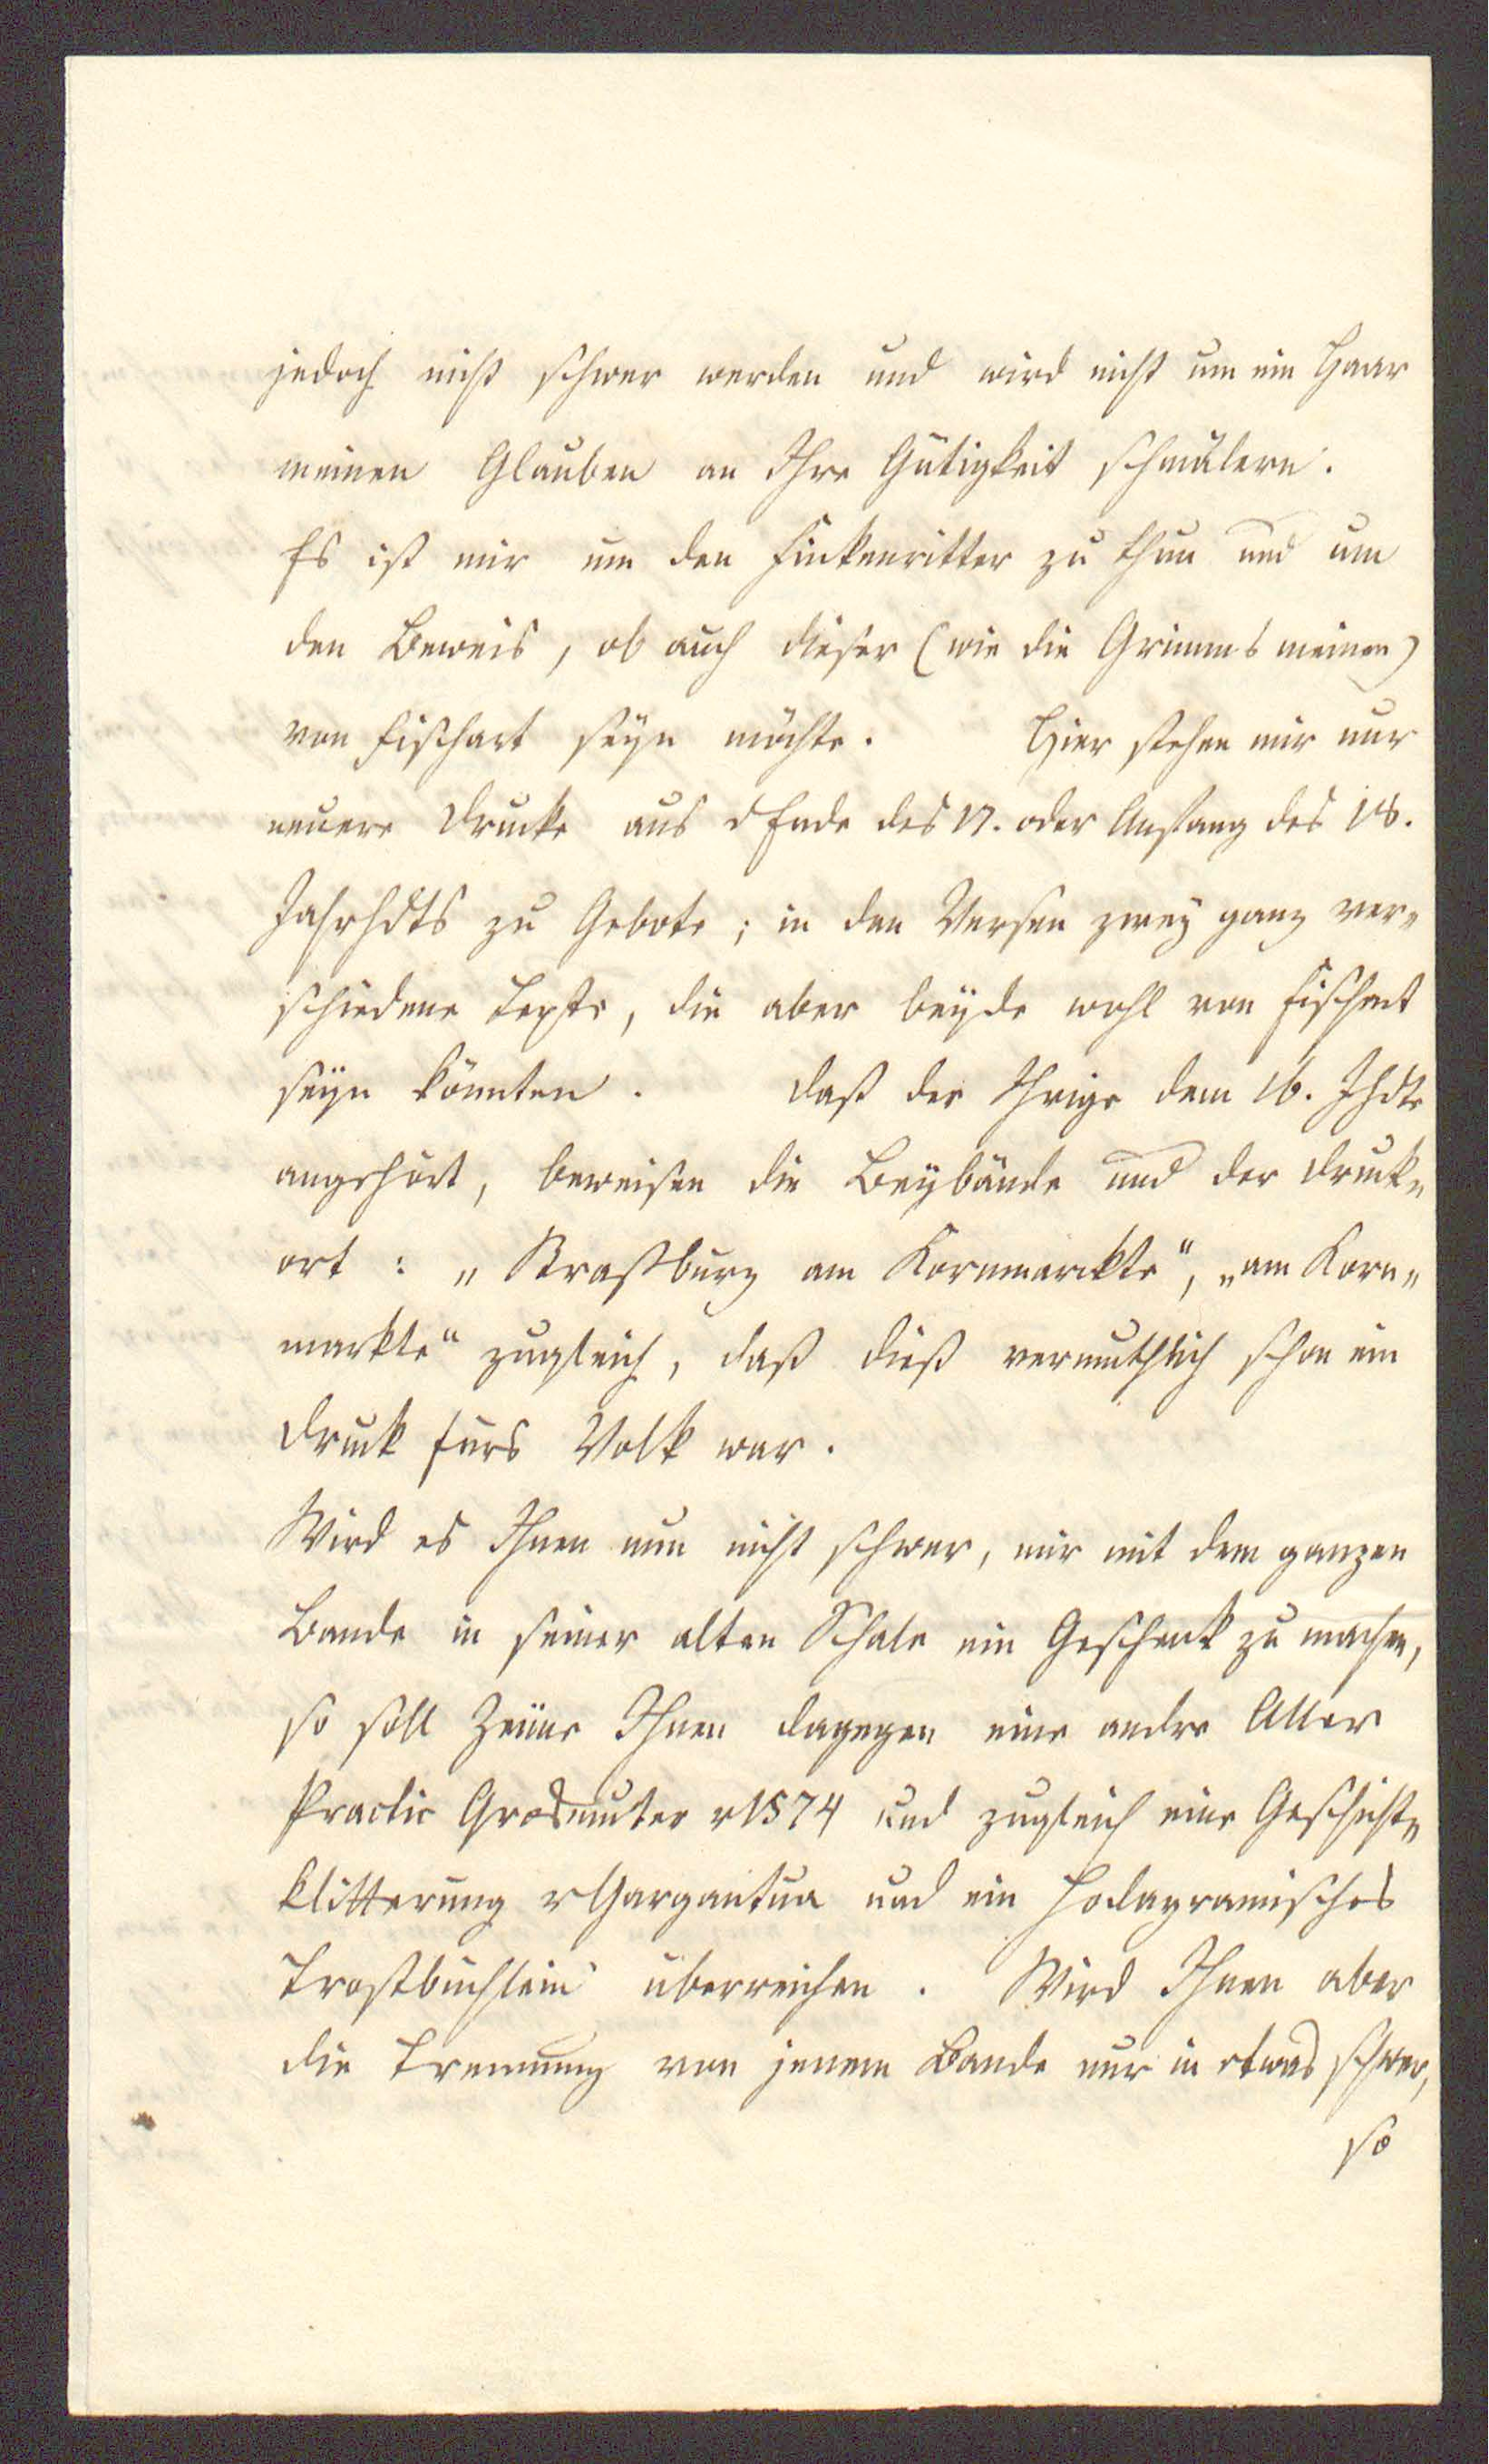 jedoch nicht schwer werden und wird nicht um ein Haar
meinen Glauben an Ihre Gütigkeit schmälern.
Es ist mir um den Finkenritter zu thun und um
den Beweis, ob auch dieser (wie die Grimms meinen)
von Fischart seyn möchte. Hier stehen mir nur
neuere Drucke aus d Ende des 17. oder Anfang des 18.
Jahrhdts zu Gebote; in den Versen zwey ganz ver-
schiedene Texte, die aber beyde wohl von Fischart
seyn könnten. Daß der Ihrige dem 16. Jhdte
angehört, beweisen die Beybände und der Druck-
ort: „Straßburg am Kornmarckte“, „am Korn-
markte“ zugleich, daß dieß vermuthlich schon ein
Druck fürs Volk war.
Wird es Ihnen nun nicht schwer, mir mit dem ganzen
Bande in seiner alten Schale ein Geschenk zu machen,
so soll Zeune Ihnen dagegen eine andre Aller
Practic Grosmuter v 1574 und zugleich eine Geschicht-
klitterung v Gargantua und ein Podagramisches
Trostbüchlein überreichen. Wird Ihnen aber
die Trennung von jenem Bande nur in etwas schwer,
so